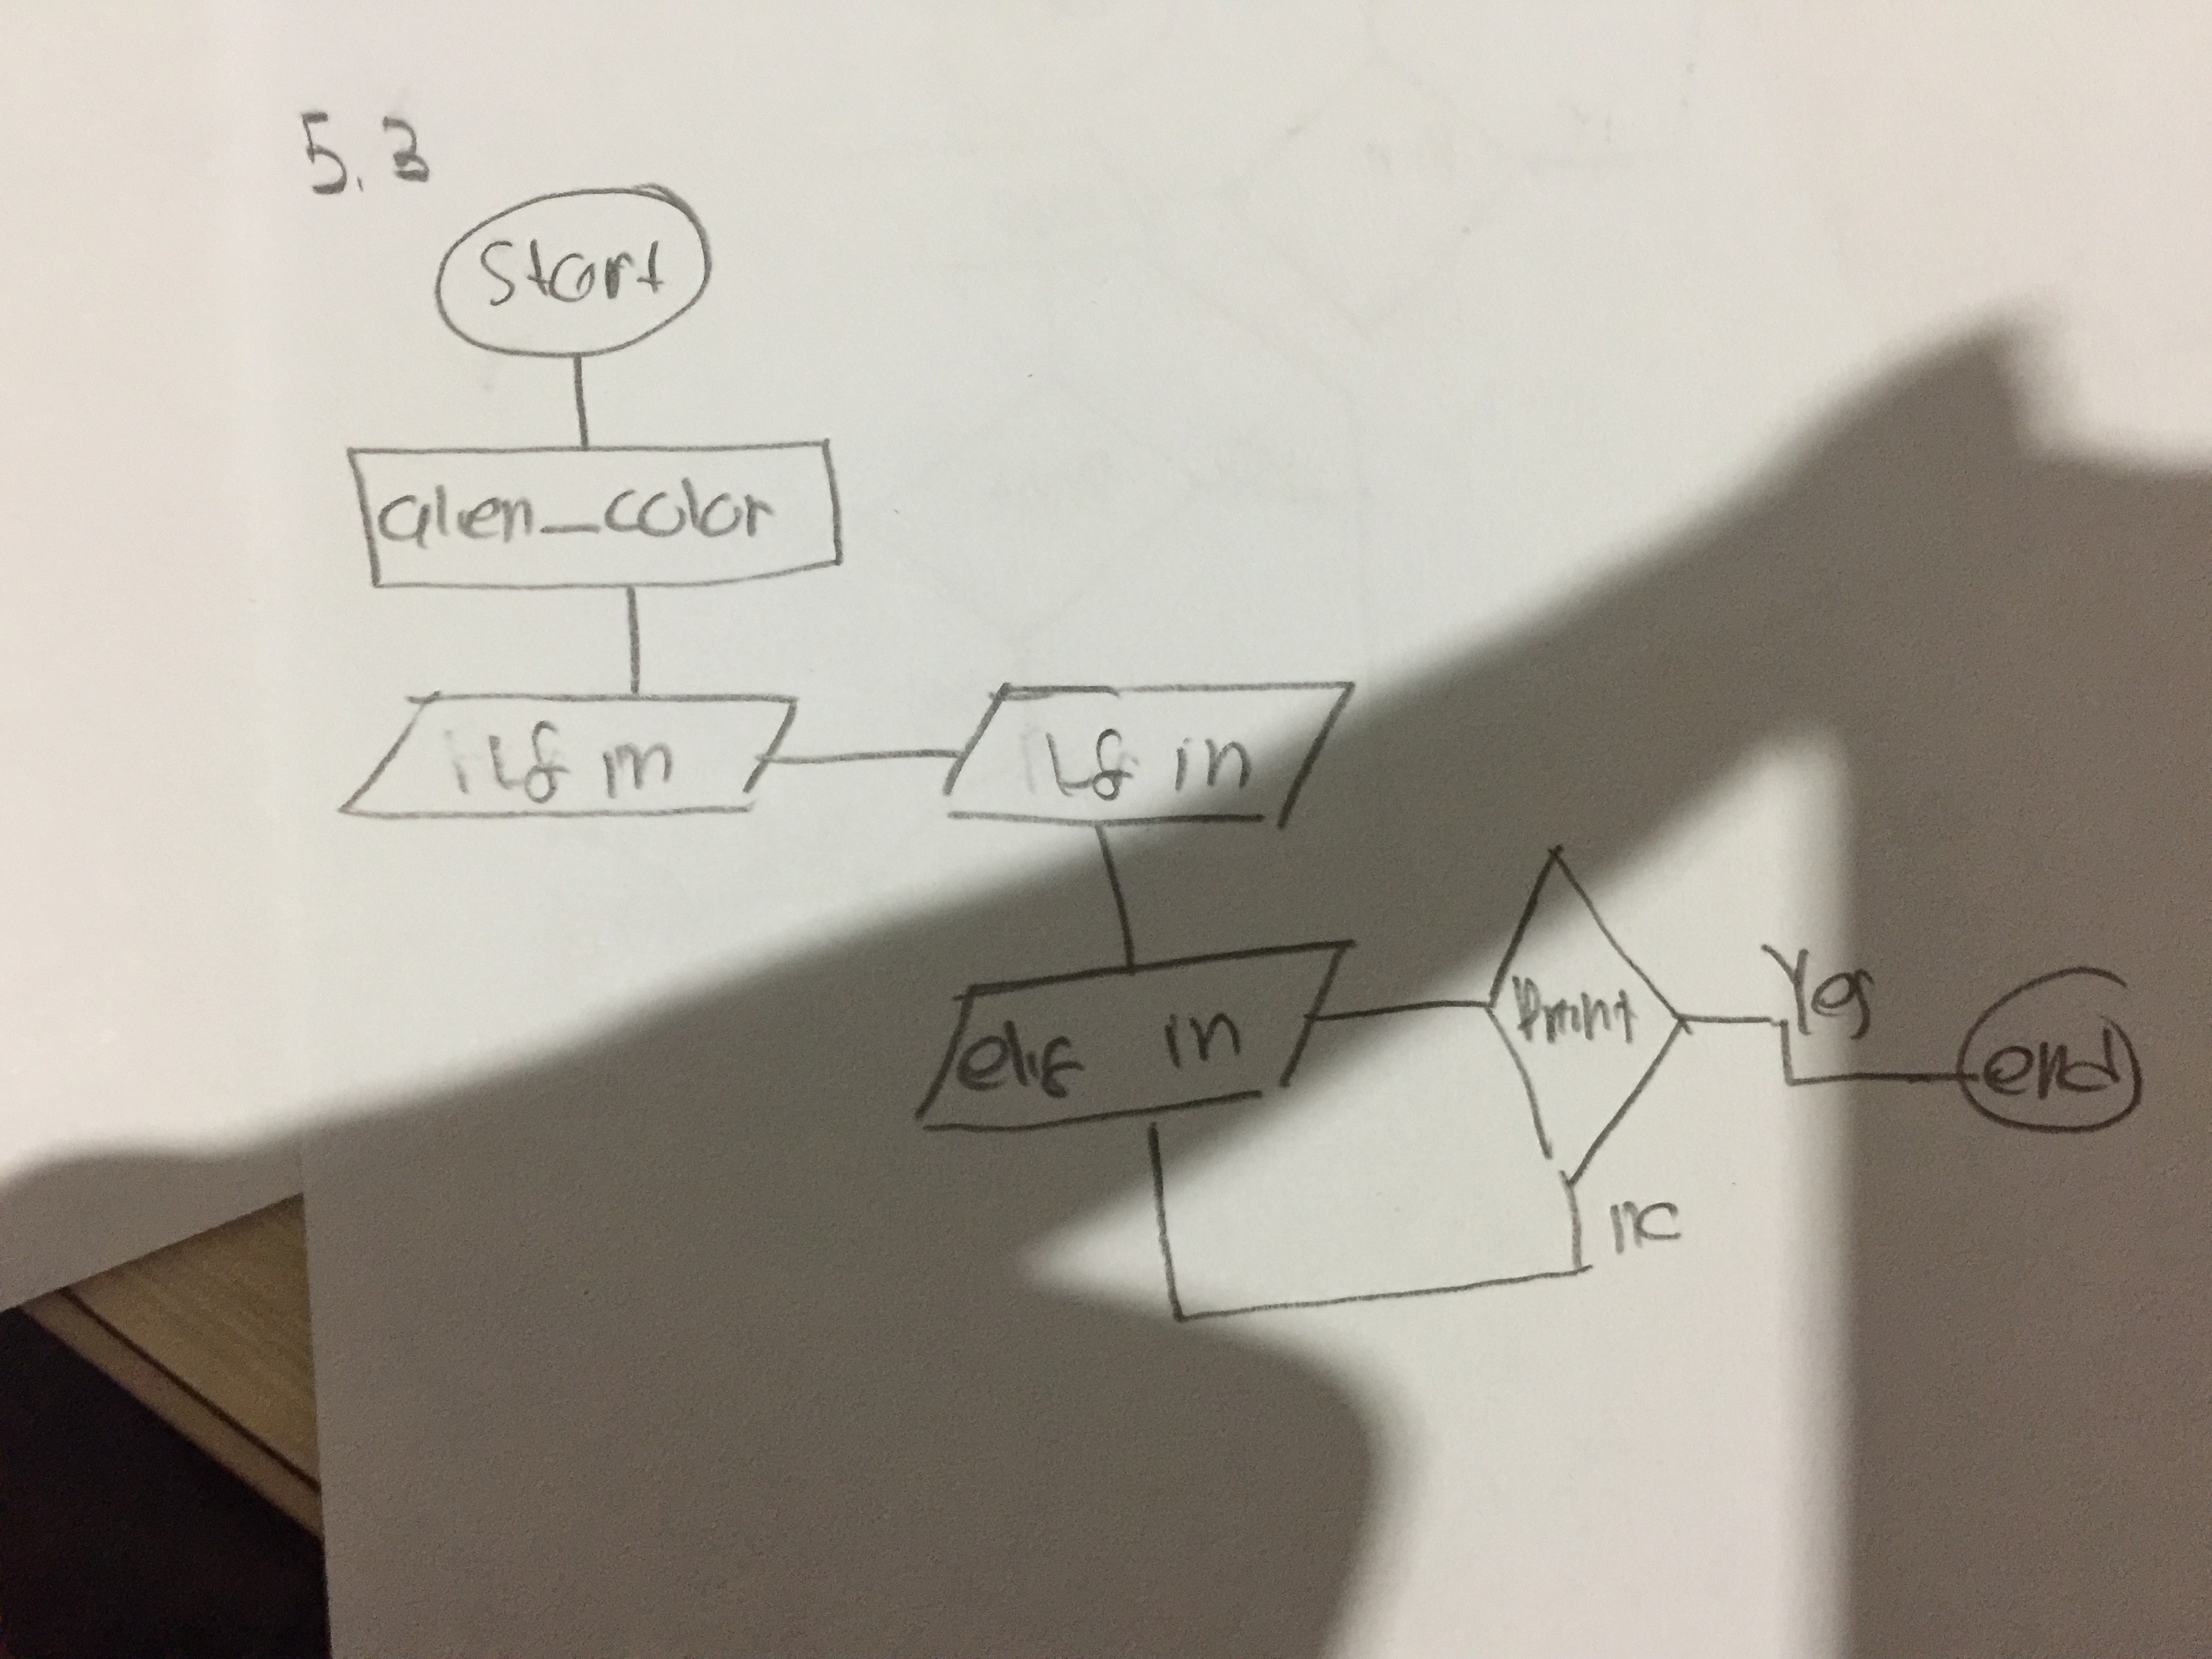 5.3
Start
alien_color
if in
if in
elif in
Print
no
Yes
end